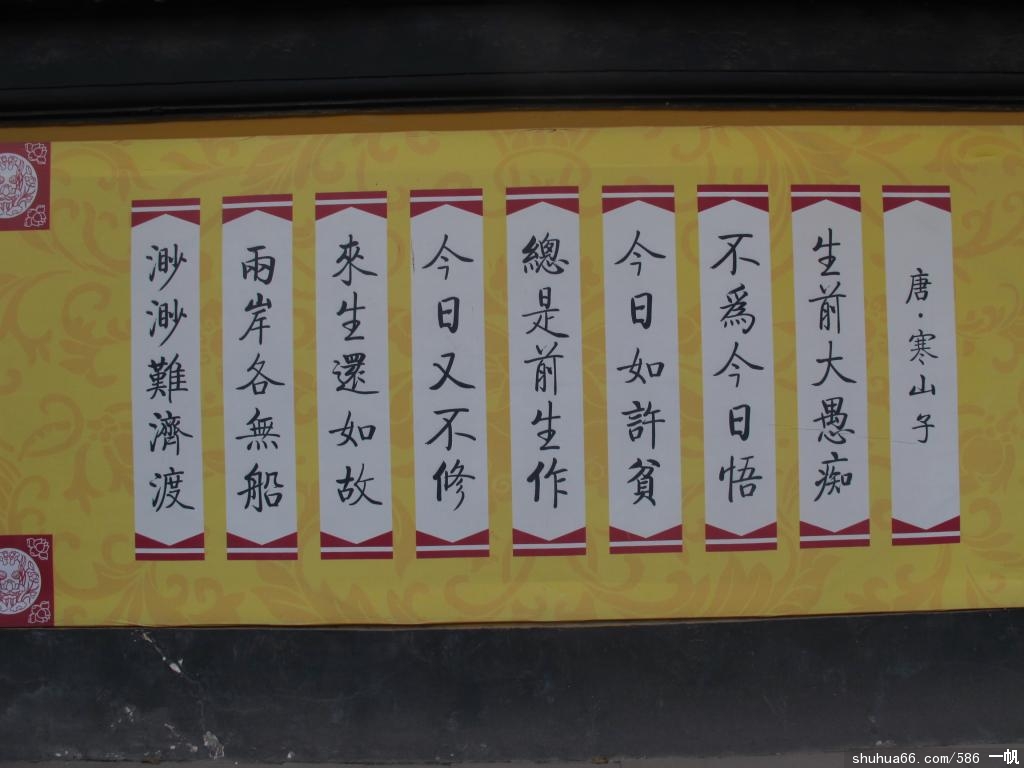 唐·寒山子
生前大愚痴
不為今日悟
今日如許貧
總是前生作
今日又不修
來生還如故
兩岸各無船
渺渺難濟渡
shuhua66.com/586 一帆